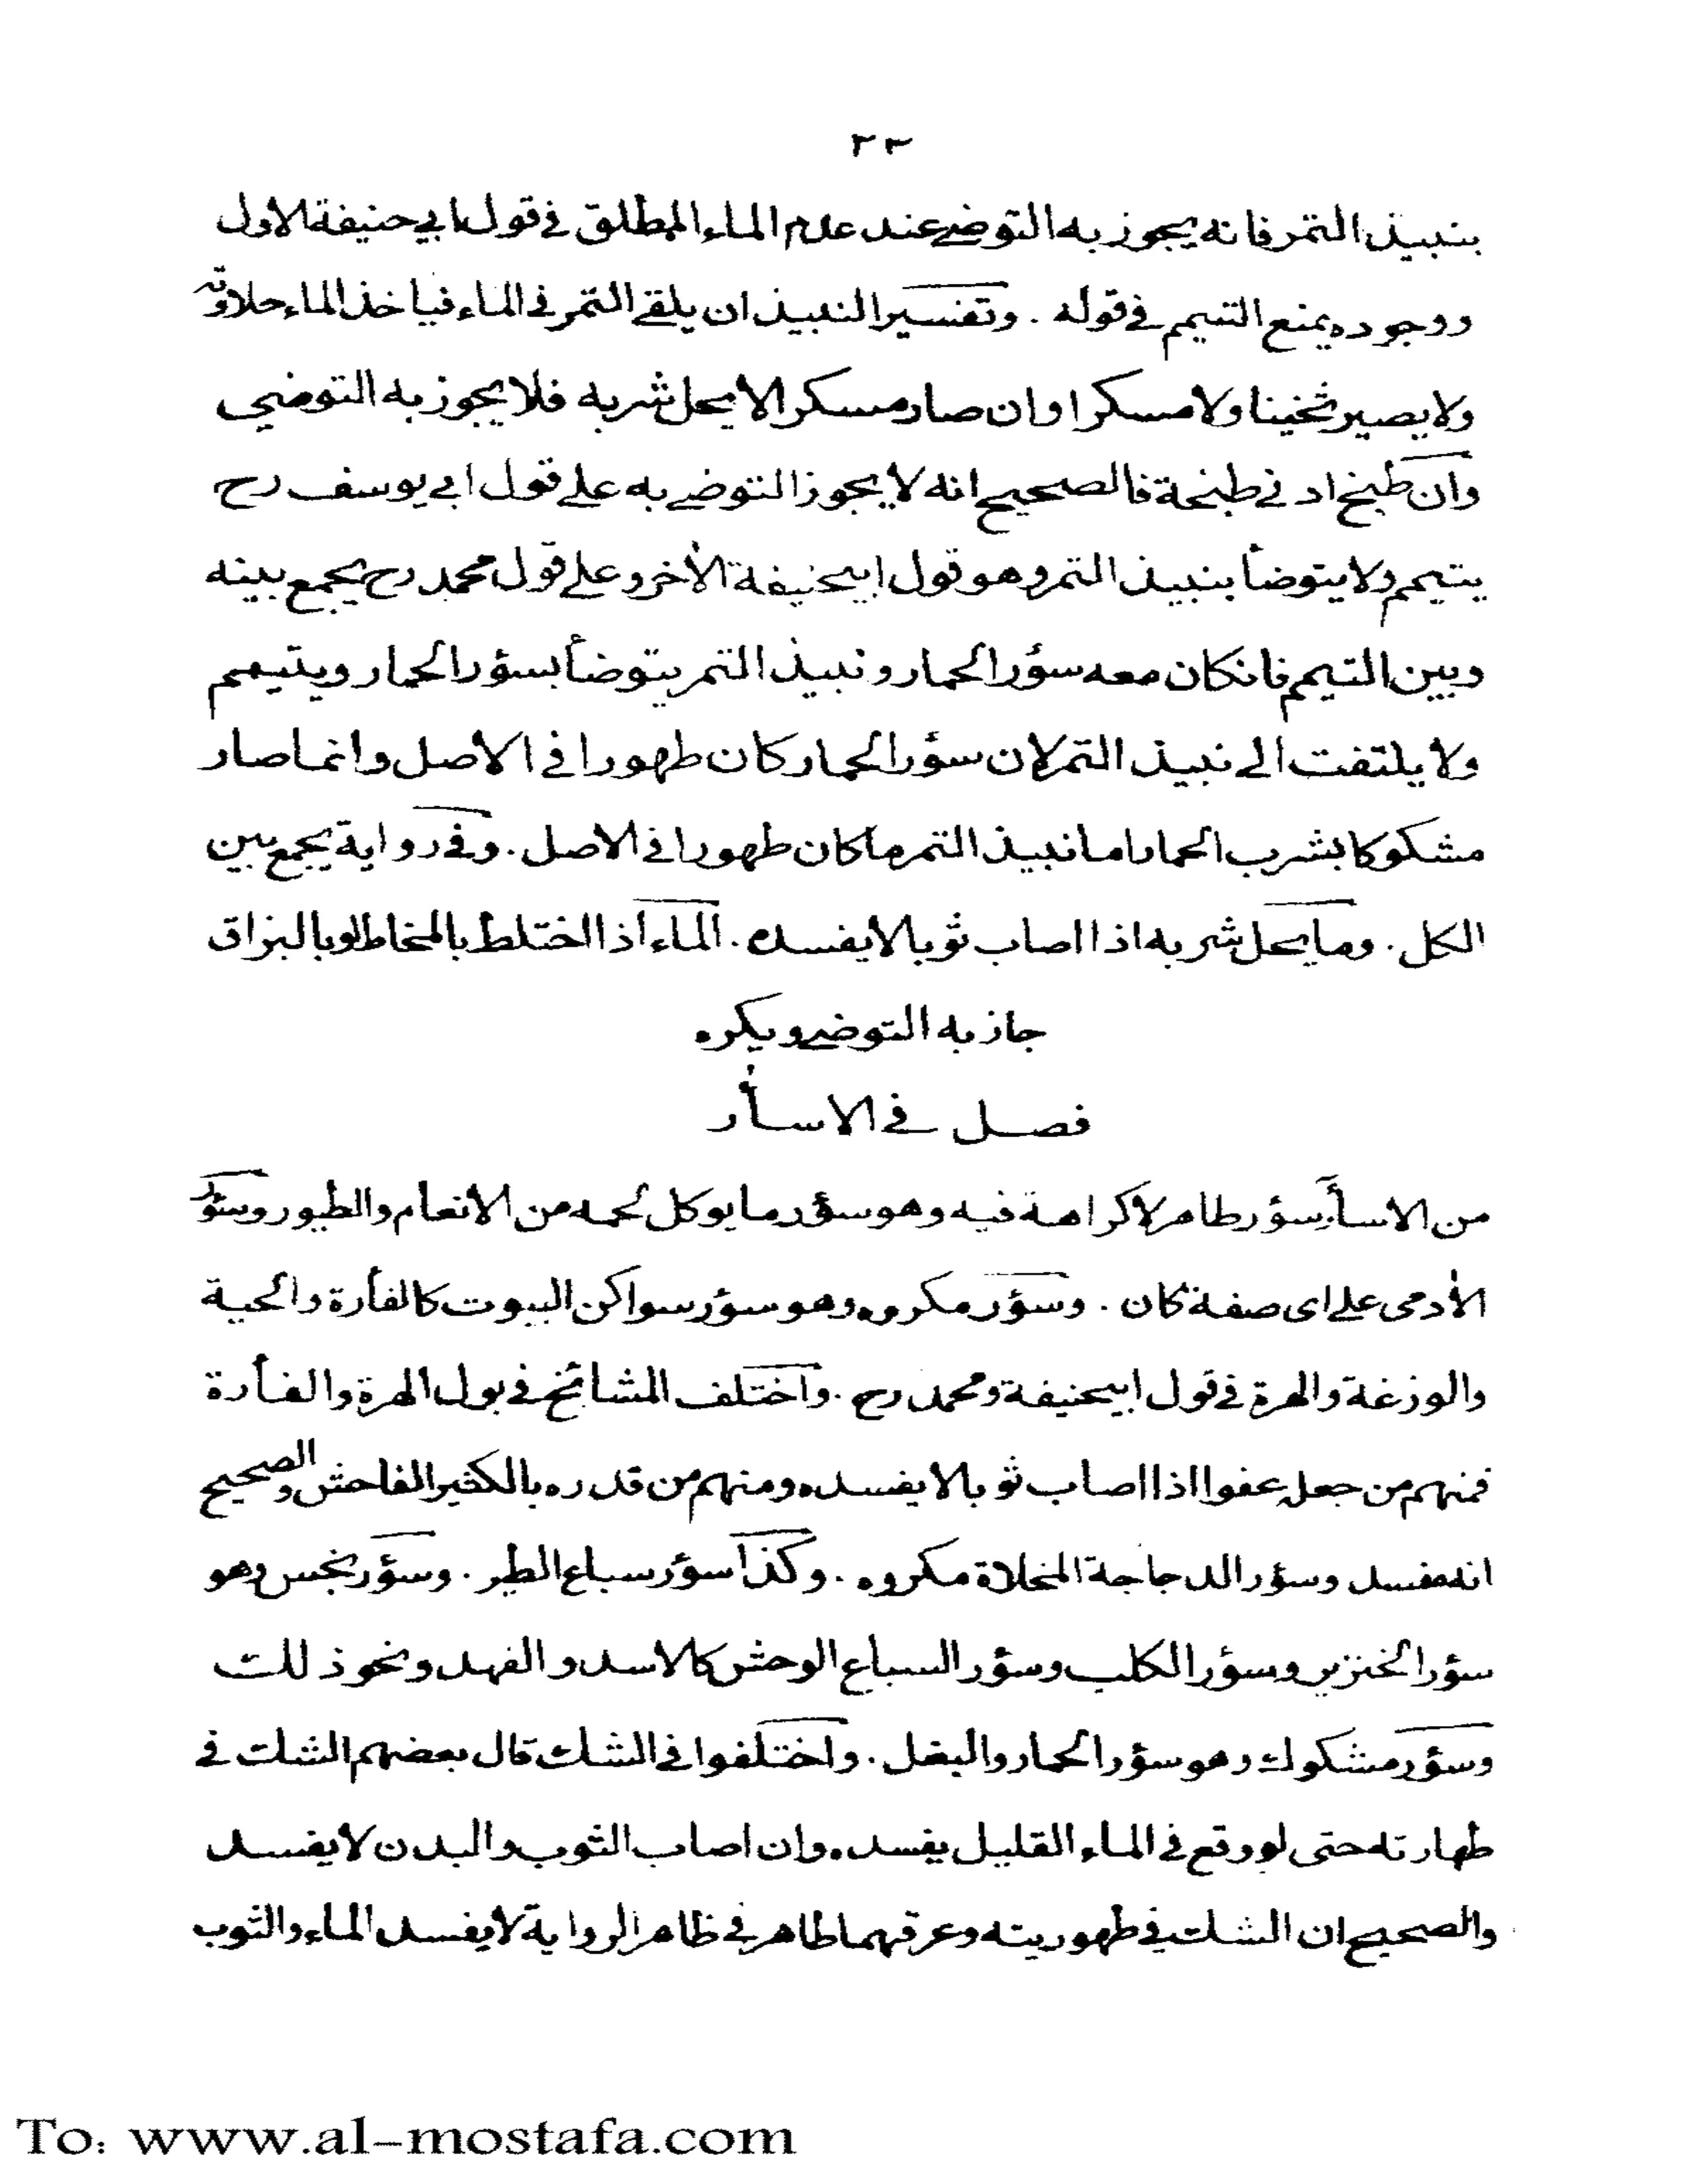 ٢٣
بنبيذ التمر فانه يجوز به التوضئ عند عدم الماء المطلق في قول ابي حنيفة الاول
ووجوده يمنع التيمم في قوله . وتفسير النبيذ ان يلقى التمر في الماء فياخذ الماء حلاوته
ولا يصير ثخينا ولا مسكرا وان صار مسكرا لا يحل شربه فلا يجوز به التوضي
وان طبخ ادنى طبخة فالصحيح انه لا يجوز التوضئ به على قول ابي يوسف رح
يتيمم ولا يتوضأ بنبيذ التمر وهو قول ابيحنيفة الأخر وعلى قول محمد رح يجمع بينه
وبين التيمم فانكان معه سؤر الحمار ونبيذ التمر يتوضأ بسؤر الحمار ويتيمم
ولا يلتفت الى نبيذ التمر لان سؤر الحمار كان طهورا في الاصل وانما صار
مشكوكا بشرب الحمار اما نبيذ التمر ما كان طهورا في الاصل . وفي رواية يجمع بين
الكل . وما يحل شربه اذا اصاب ثوبا لا يفسده . الماء اذا اختلط بالمخاط او بالبزاق
جاز به التوضئ ويكره
فصل في الاسأر
من الاسأر سؤر طاهر لا كراهة فيه وهو سؤر ما يوكل لحمه من الانعام والطيور وسؤر
الأدمى على اى صفة كان . وسؤر مكروه وهو سؤر سواكن البيوت كالفأرة والحية
والوزغة والهرة في قول ابيحنيفة ومحمد رح . واختلف المشائخ في بول الهرة والفأرة
فمنهم من جعله عفوا اذا اصاب ثوبا لا يفسده ومنهم من قدره بالكثير الفاحش والصحيح
انه مفسد وسؤر الدجاجة المخلاة مكروه . وكذا سؤر سباع الطير . وسؤر نجس وهو
سؤر الخنزير وسؤر الكلب وسؤر السباع الوحش كالاسد والفهد ونحو ذلك
وسؤر مشكوك وهو سؤر الحمار والبغل . واختلفوا في الشك قال بعضهم الشك في
طهارته حتى لو وقع في الماء القليل يفسده وان اصاب الثوب والبدن لا يفسد
والصحيح ان الشك في طهوريته وعرقهما طاهر في ظاهر الرواية لا يفسد الماء والثوب
To: www.al-mostafa.com